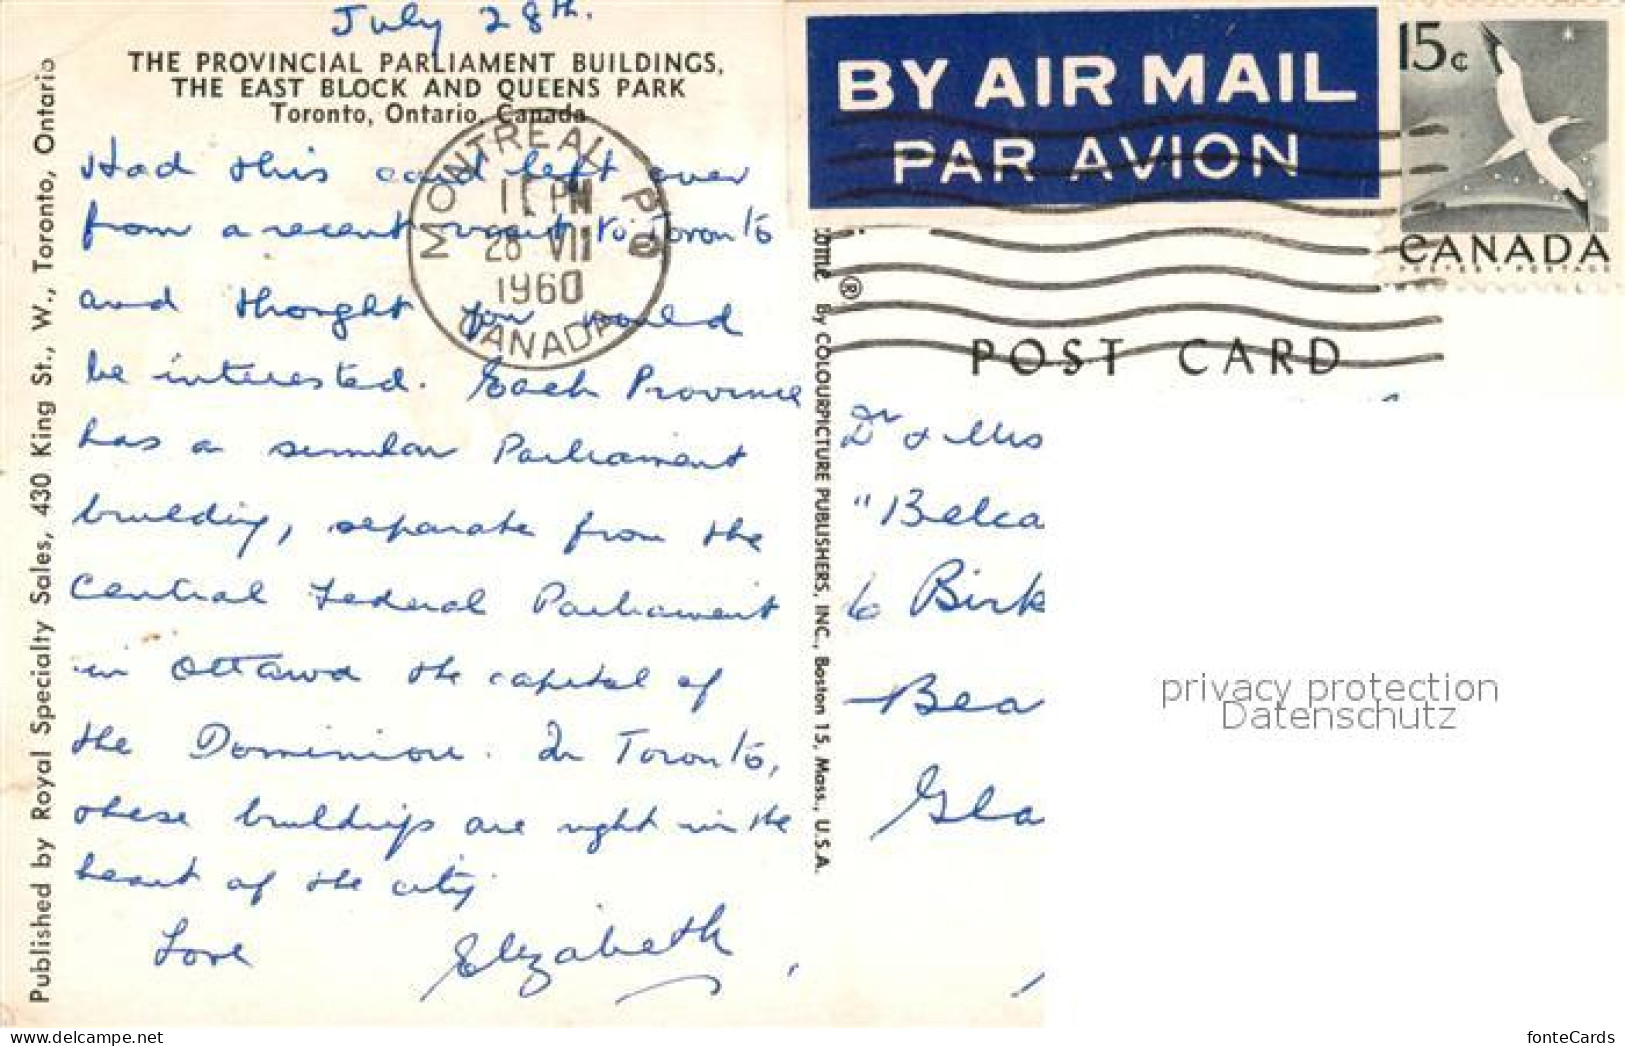 July 28th.
THE PROVINCIAL PARLIAMENT BUILDINGS,
THE EAST BLOCK AND QUEENS PARK
Toronto, Ontario, Canada
Had this card left over
from a recent visit to Toronto
and thought you would
be interested. Each Province
has a similar Parliament
building, separate from the
Central Federal Parliament
in Ottawa the capital of
the Dominion. In Toronto,
these buildings are right in the
heart of the city.
Love Elizabeth
Published by Royal Specialty Sales, 430 King St., W., Toronto, Ontario
MONTREAL P Q
PM
28 VII
1960
CANADA
ome ® By COLOURPICTURE PUBLISHERS, INC., Boston 15, Mass., U.S.A.
BY AIR MAIL
PAR AVION
15c
CANADA
POSTES POSTAGE
POST CARD
Dr & Mrs
"Belca
6 Birk
Bea
Gla
privacy protection
Datenschutz
delcampe.net
fonteCards